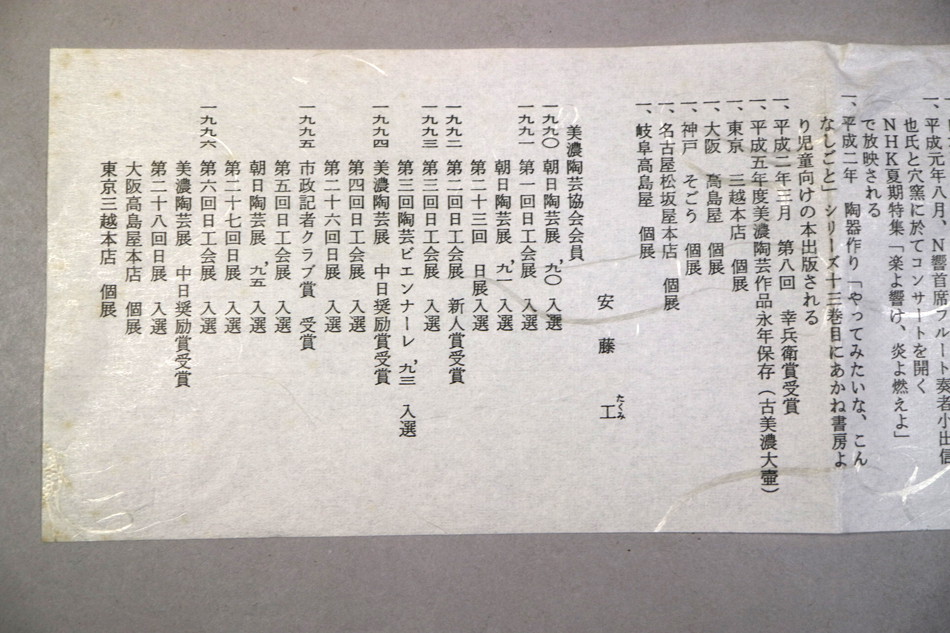 一、平成元年八月、N響首席フルート奏者小出信
也氏と穴窯に於てコンサートを開く
NHK夏期特集「楽よ響け、炎よ燃えよ」
で放映される
一、平成二年　陶器作り「やってみたいな、こん
なしごと」シリーズ十三巻目にあかね書房よ
り児童向けの本出版される
一、平成二年三月　第八回　幸兵衛賞受賞
一、平成五年度美濃陶芸作品永年保存（古美濃大壷）
一、東京　三越本店　個展
一、大阪　髙島屋　個展
一、神戸　そごう　個展
一、名古屋松坂屋本店　個展
一、岐阜髙島屋　個展
安藤　工
たくみ
美濃陶芸協会会員
一九九〇　朝日陶芸展　'九〇　入選
一九九一　第一回日工会展　入選
朝日陶芸展　'九一　入選
第二十三回　日展入選
一九九二　第二回日工会展　新人賞受賞
一九九三　第三回日工会展　入選
第三回陶芸ビエンナーレ　'九三　入選
一九九四　美濃陶芸展　中日奨励賞受賞
第四回日工会展　入選
第二十六回日展　入選
一九九五　市政記者クラブ賞　受賞
第五回日工会展　入選
朝日陶芸展　'九五　入選
第二十七回日展　入選
一九九六　第六回日工会展　入選
美濃陶芸展　中日奨励賞受賞
第二十八回日展　入選
大阪髙島屋本店　個展
東京三越本店　個展